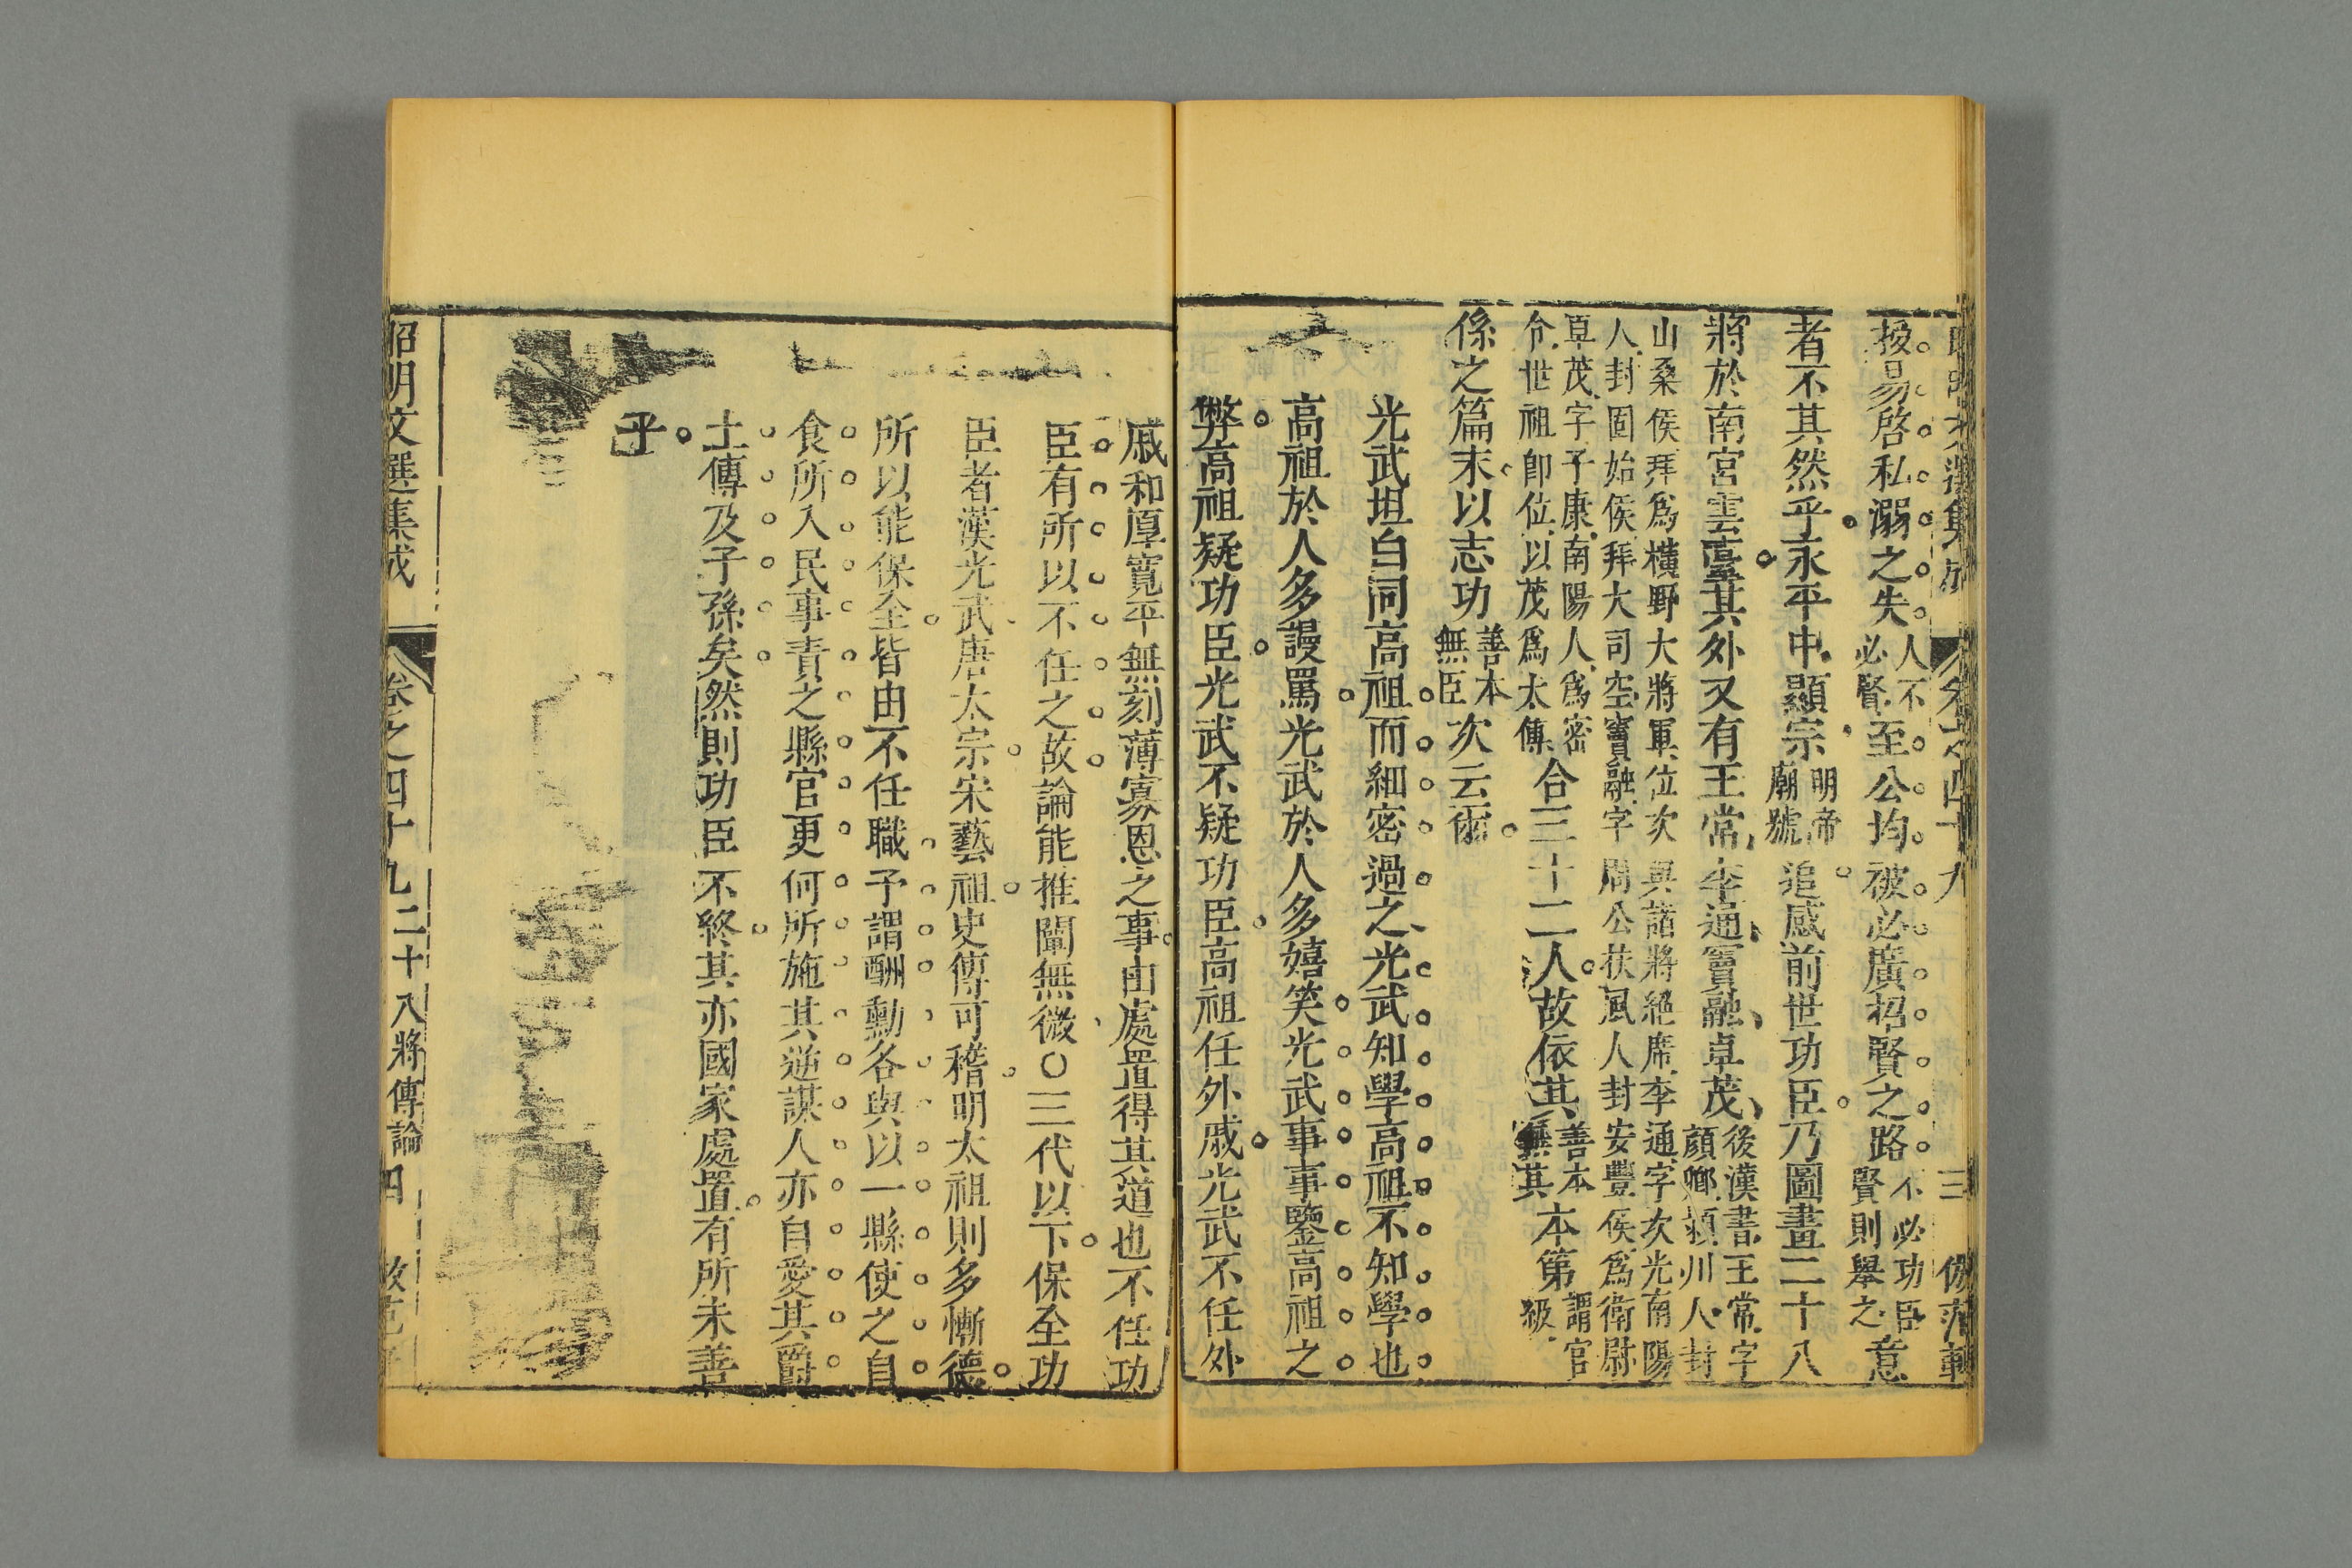 授易啓私溺之失人不必賢至公均被必廣招賢之路不必功臣賢則舉之意
者不其然乎永平中顯宗明帝廟號追感前世功臣乃圖畫二十八
將於南宮雲臺其外又有王常李通竇融卓茂後漢書王常字顏卿潁川人封
山桑侯拜爲橫野大將軍位次與諸將絕席李通字次光南陽
人封固始侯拜大司空竇融字周公扶風人封安豐侯爲衛尉
卓茂字子康南陽人爲密令世祖卽位以茂爲太傅合三十二人故依其善本無其本第謂官級
係之篇末以志功善本無臣次云爾
光武坦白同高祖而細密過之光武知學高祖不知學也
高祖於人多謾罵光武於人多嬉笑光武事事鑒高祖之
弊高祖疑功臣光武不疑功臣高祖任外戚光武不任外
戚和厚寬平無刻薄寡恩之事由處置得其道也不任功
臣有所以不任之故論能推闡無微○三代以下保全功
臣者漢光武唐太宗宋藝祖史傳可稽明太祖則多慚德
所以能保全皆由不任職予謂酬勳各與以一縣使之自
食所入民事責之縣官更何所施其逆謀人亦自愛其爵
土傳及子孫矣然則功臣不終其亦國家處置有所未善
乎
昭明文選集成 卷之四十九 二十八將傳論 四